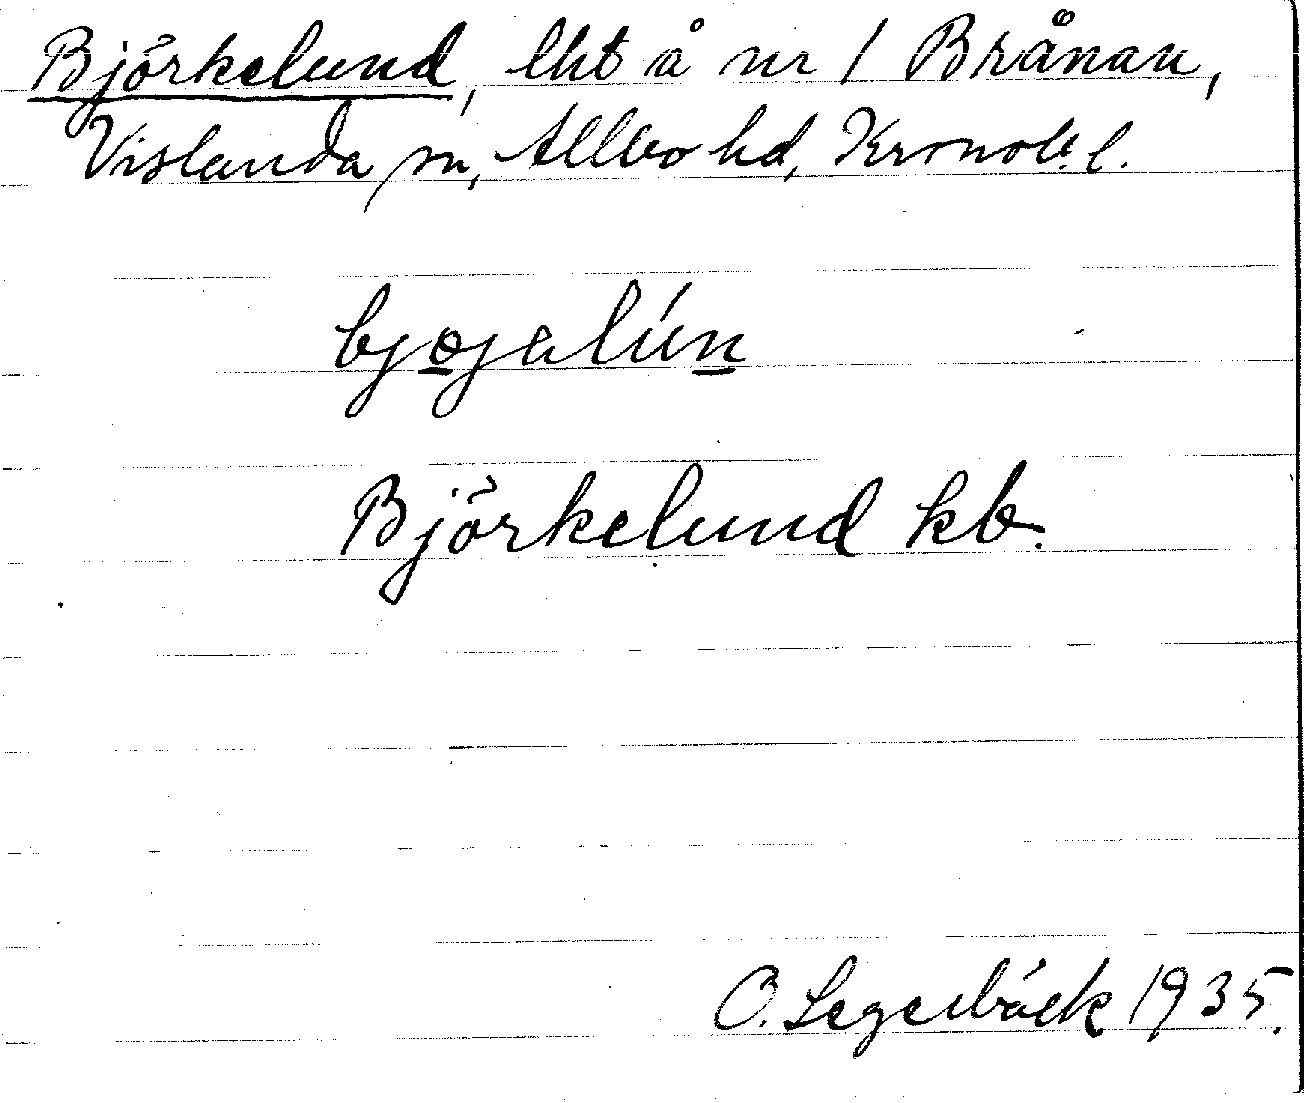 Björkelund, lht å nr 1 Brånan,
Vislanda sn, Allbo hd, Kronob. l.
Björkelund kb.
O. Segerbäck 1935.